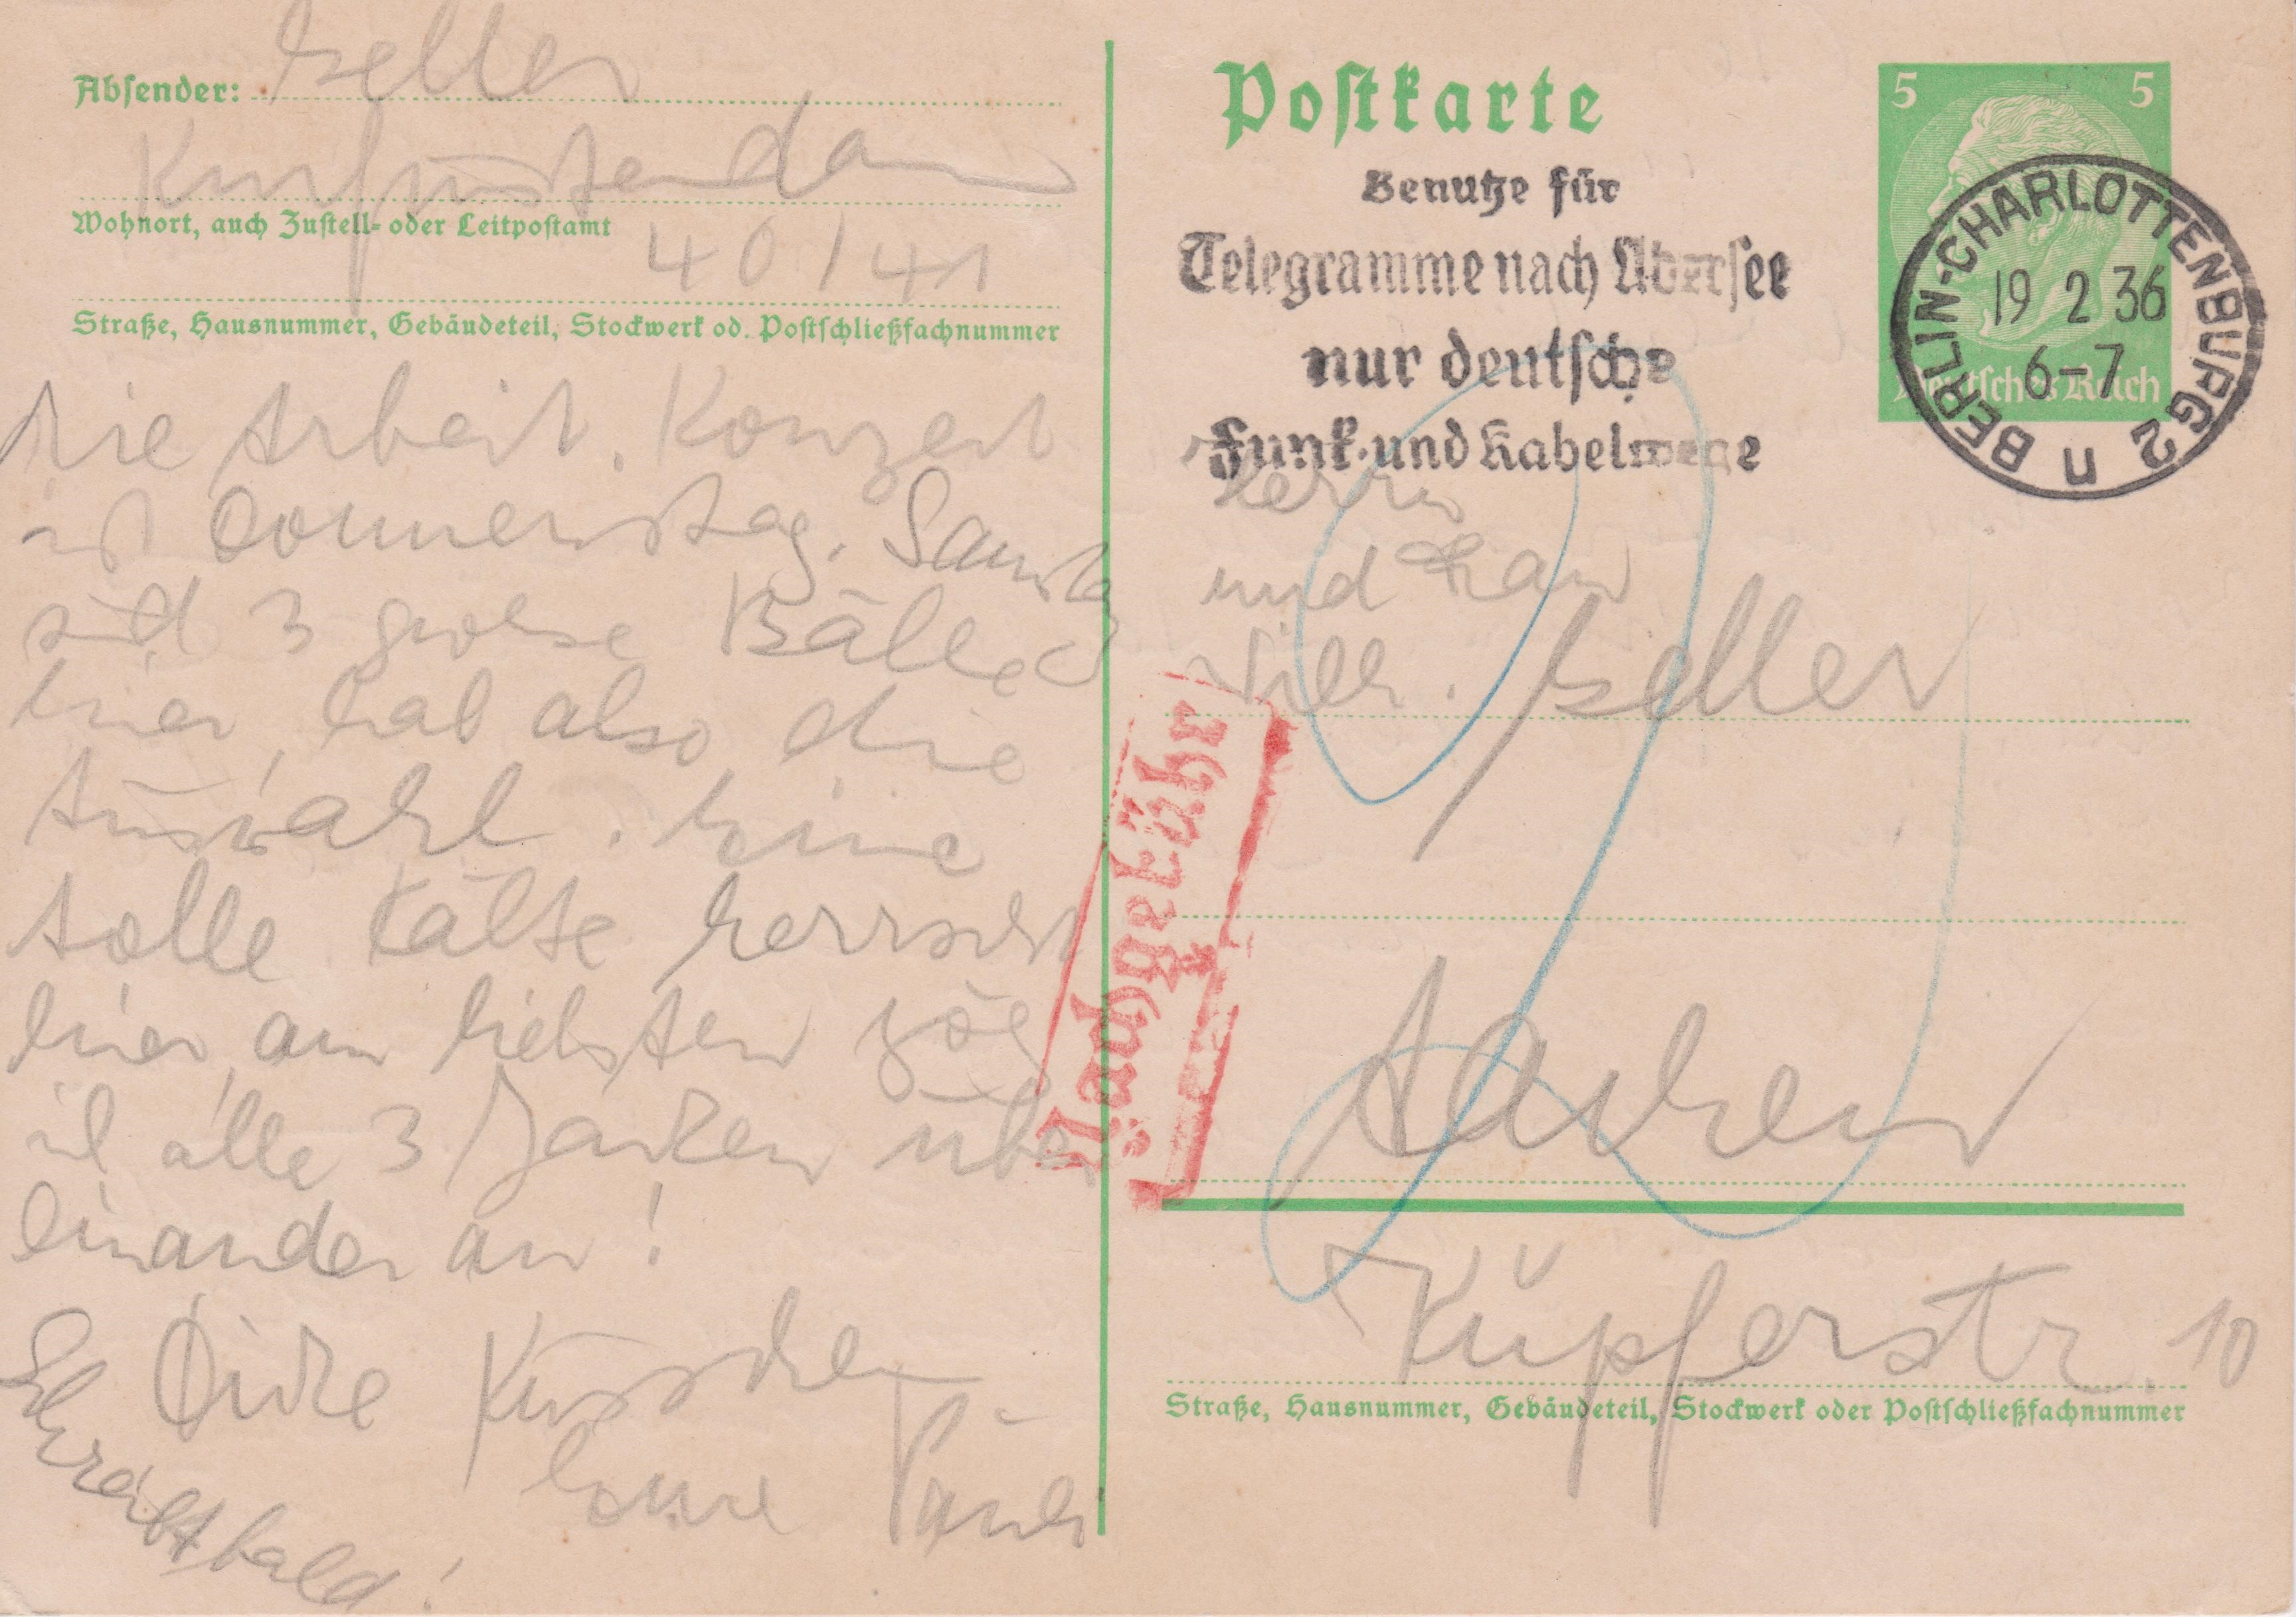 Absender: Geller
Kurfürstendam
Wohnort, auch Zustell- oder Leitpostamt
40/41
Straße, Hausnummer, Gebäudeteil, Stockwerk od. Postschließfachnummer
die Arbeit. Konzert
ist Donnerstag. Samstag
sind 3 grosse Bälle
hier, hab also die
Auswahl. Eine
tolle Kälte herrscht
hier, am liebsten zög
ich alle 3 Jacken über
einander an!
Dicke Küsschen
Eure
Schreibt bald!
Postkarte
Benutze für
Telegramme nach Übersee
nur deutsche
Funk- und Kabelwege
5 5
Deutsches Reich
BERLIN-CHARLOTTENBURG 2
19 2 36
6-7
n
Herrn
und Frau
Wilh. Geller
Nachgebühr
Aachen
Küpferstr. 10
Straße, Hausnummer, Gebäudeteil, Stockwerk oder Postschließfachnummer